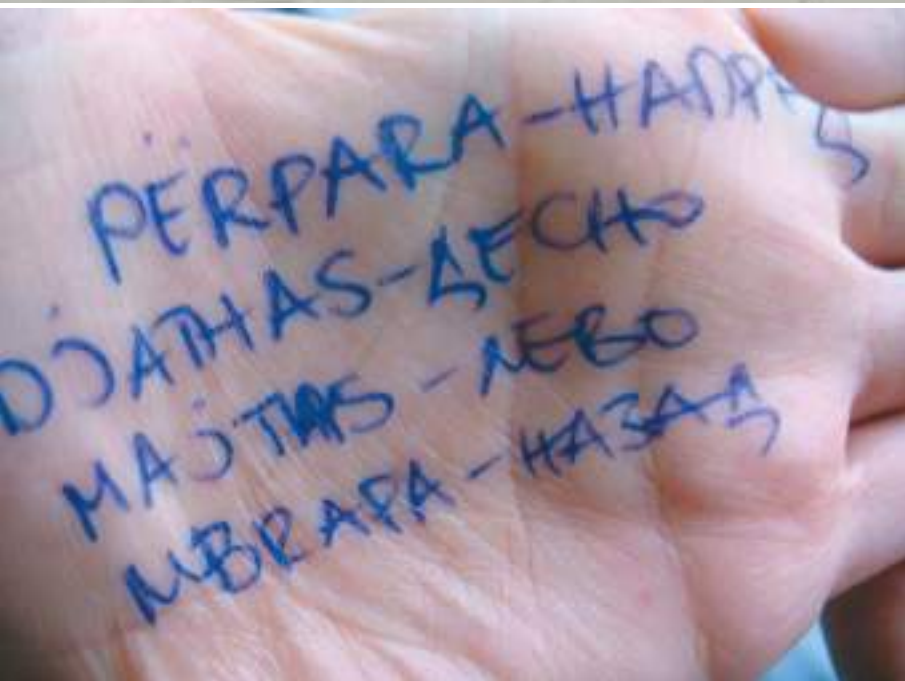 PËRPARA-НАПРЕД
DJATHAS-ДЕСНО
MAJTAS-ЛЕВО
MBRAPA-НАЗАД